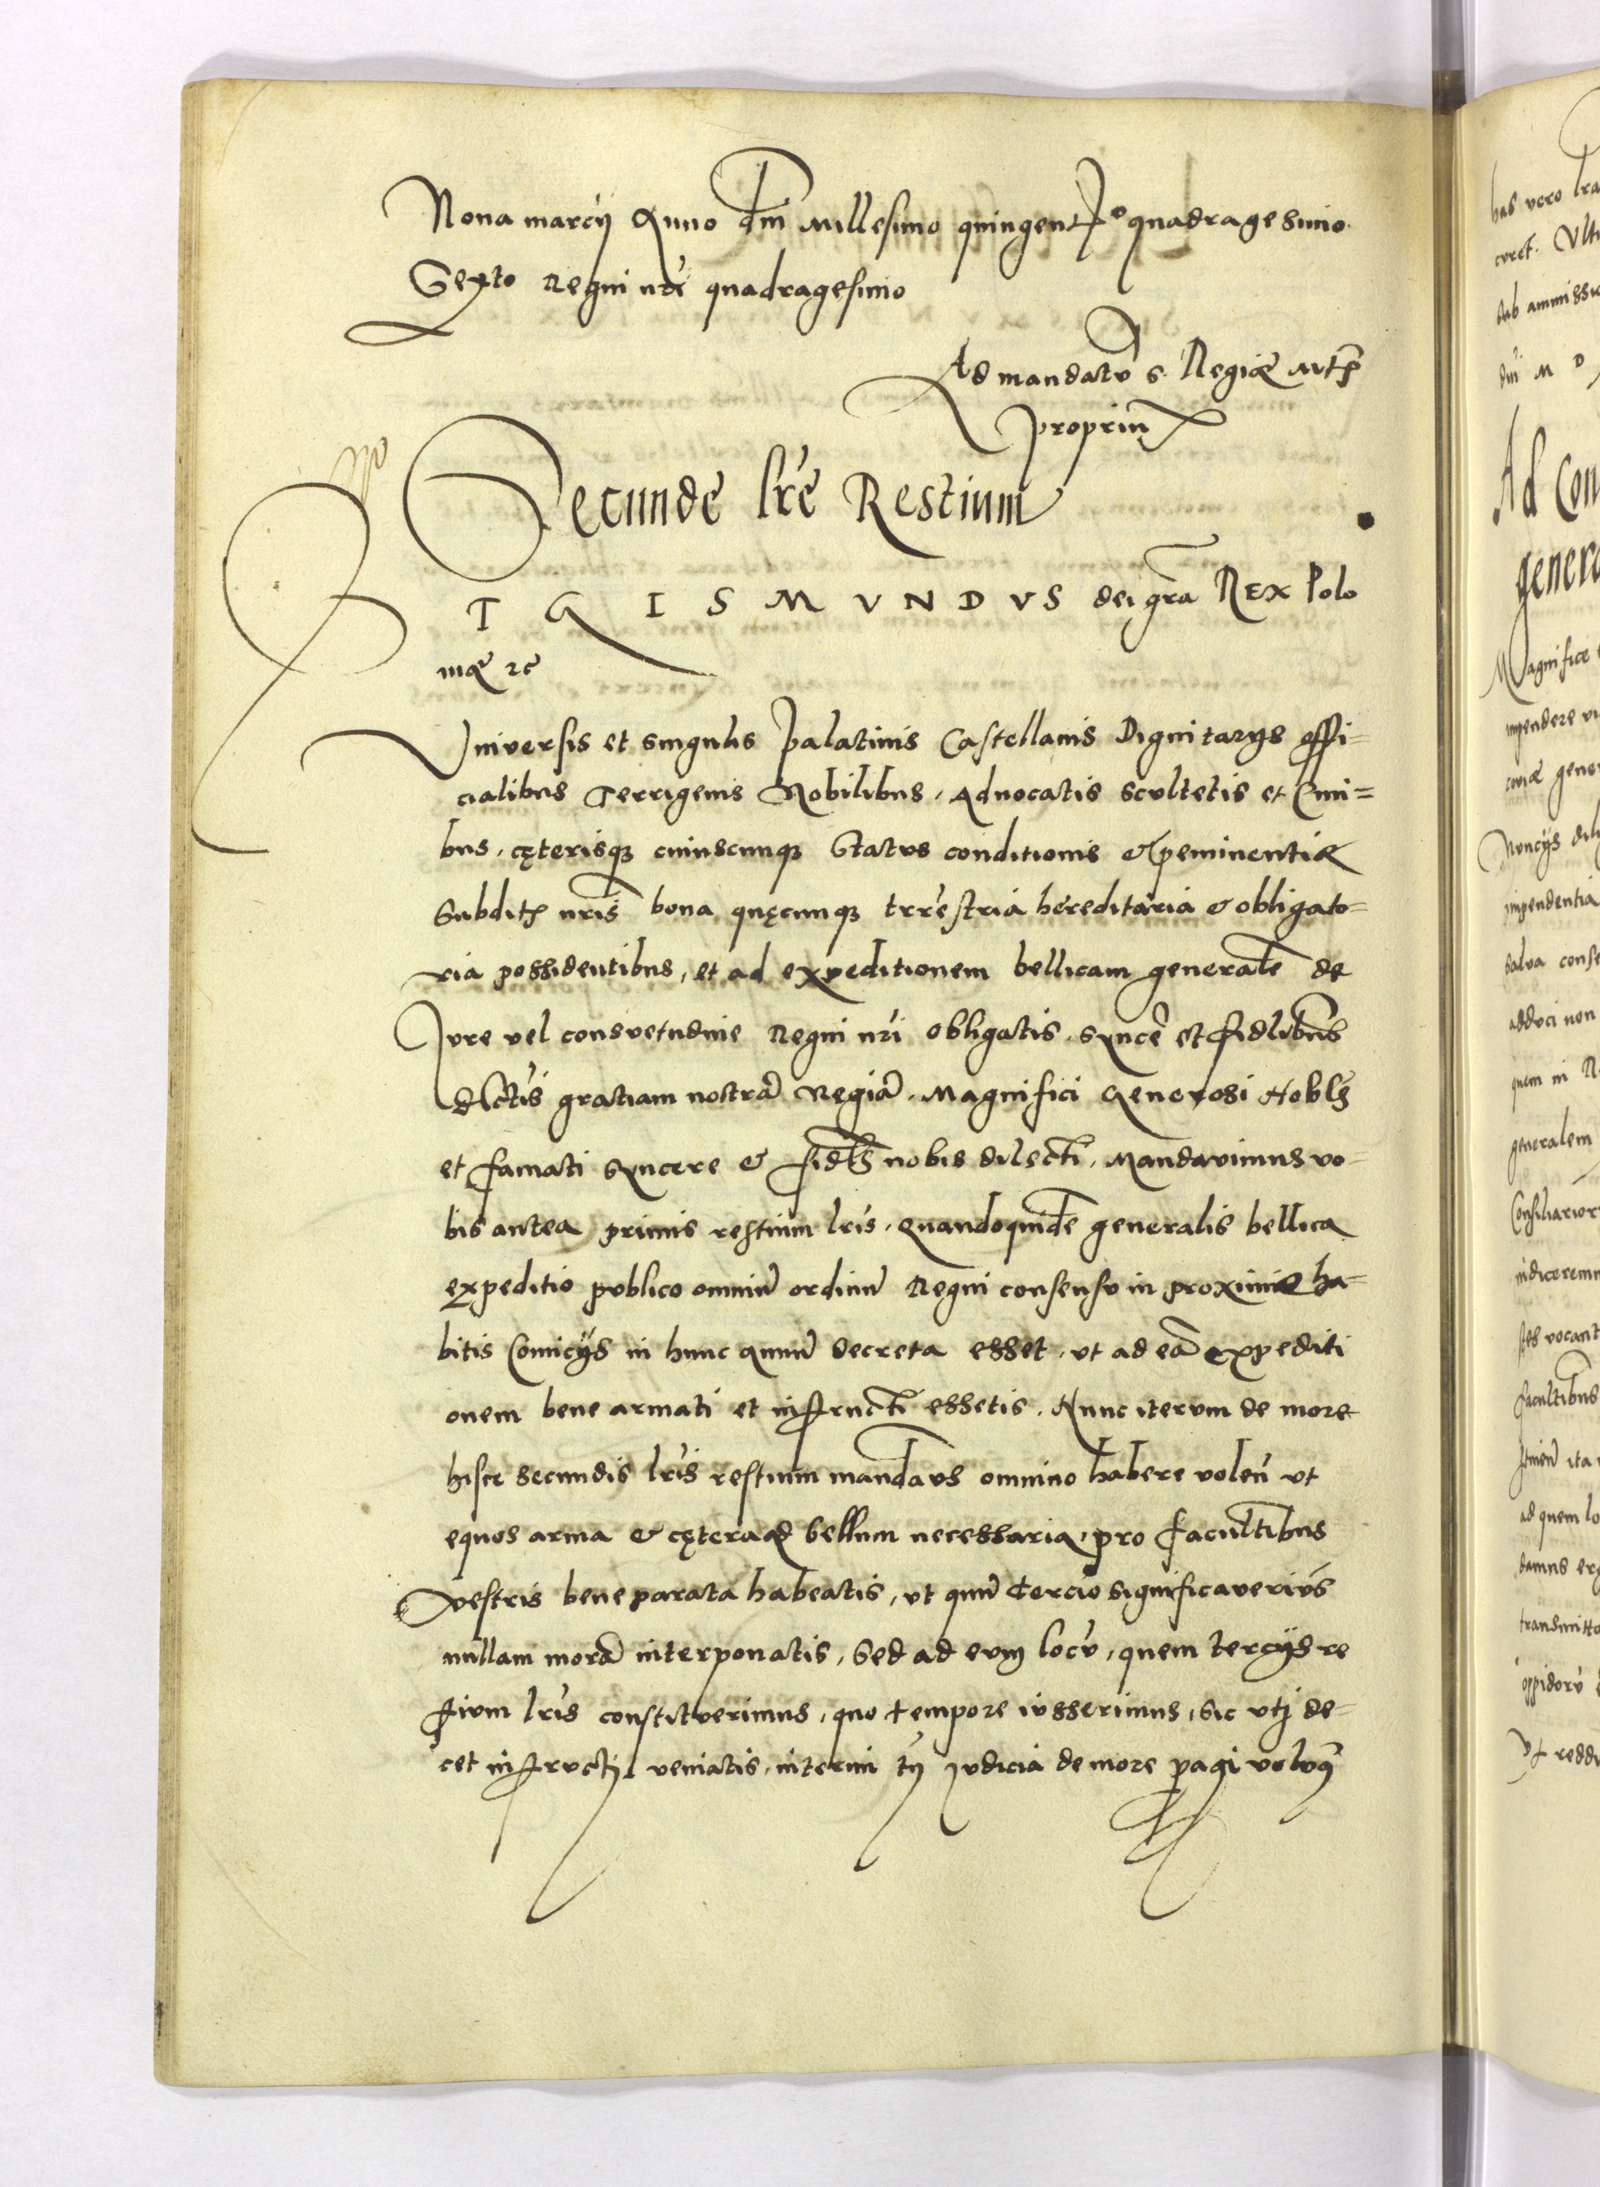 Nona marcij Anno dni Millesimo quingent° quadragesimo
Sexto Regni nri quadragesimo
Ad mandatū S. Regiæ Mtis
propriū
Secunde lre Restium
SIGISMVNDVS dei gra Rex Polo
niæ zc
Vniversis et singulis Palatinis Castellanis Dignitarijs offi=
cialibus Terrigenis Nobilibus, Aduocatis scultetis et Ciui=
bus, cęterisq3 cuiuscunq3 Status conditionis & p̄eminentiæ
Subditis nris bona quęcunq3 trrestria hereditaria & obligato=
ria possidentibus, et ad expeditionem bellicam generalē de
Jure vel consvetudine Regni nri obligatis, syncē et fidlibus
dlctis gratiam nostrā Regiā. Magnifici Generosi Nobls
et famati syncere & fidls nobis dilecti. Mandavimus vo=
bis antea primis restium lris. Quandoquidē generalis bellica
expeditio publico omniū ordinū Regni consensu in proxime ha=
bitis Comicijs in hunc annū decreta esset, vt ad eā expediti
onem bene armati et instructi essetis. Nunc iterum de more
hisce secundis lris restium mandavs omnino habere volen̄ vt
equos arma & cętera ad bellum necessaria, pro facultibus
vestris bene parata habeatis, vt quū tercio significaverim9
nullam morā interponatis, Sed ad eum locū, quem tercijs re
stium lris constituerimus, quo tempore iusserimus, sic vti de=
cet instructi veniatis, interim tn̄ Judicia de more pagi volum9
has vero lra
curet. Ulti
sub ammissio
dni M D
Ad Con
genera
Magnifice
impendere
gene
Nuncijs
impendentia
salua conse
adduci non
quem in R
generalem
Consiliarior
indiceremu
vocant
facultibus
ita
ad quem lo
damus
transmitto
oppidorū
Vt redd